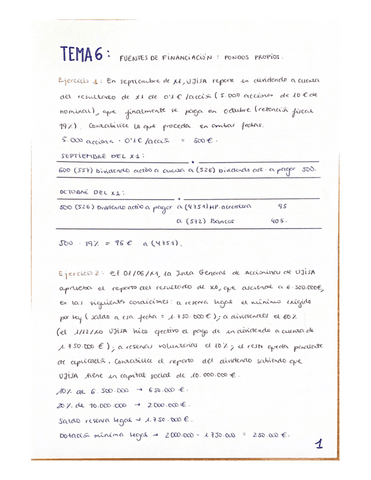 TEMA 6: FUENTES DE FINANCIACIÓN: FONDOS PROPIOS.
Ejercicio 1: En septiembre de X1, UJISA reparte un dividendo a cuenta
del resultado de X1 de 0'1 €/acción (5.000 acciones de 10 € de
nominal), que finalmente se paga en octubre (retención fiscal
19%). Contabilice lo que proceda en ambas fechas.
5.000 acciones · 0'1 €/acción = 500 €.
SEPTIEMBRE DEL X1:
500 (557) Dividendo activo a cuenta a (526) Dividendo act. a pagar 500.
OCTUBRE DEL X1:
500 (526) Dividendo activo a pagar a (4751) HP. acreedora 95
a (572) Bancos 405.
500 · 19% = 95 € a (4751).
Ejercicio 2: El 01/06/X1, la Junta General de Accionistas de UJISA
aprueba el reparto del resultado de X0, que asciende a 6.500.000€,
en las siguientes condiciones: a reserva legal el mínimo exigido
por ley (saldo a esa fecha = 1.750.000 €); a dividendos el 80%
(el 1/12/X0 UJISA hizo efectivo el pago de un dividendo a cuenta de
1.750.000 €); a reservas voluntarias el 10%; el resto queda pendiente
de aplicación. Contabilice el reparto del dividendo sabiendo que
UJISA tiene un capital social de 10.000.000€.
10% de 6.500.000 → 650.000 €.
20% de 10.000.000 → 2.000.000 €.
Saldo reserva legal → 1.750.000 €.
Dotación mínima legal → 2.000.000 - 1.750.000 = 250.000 €.
1